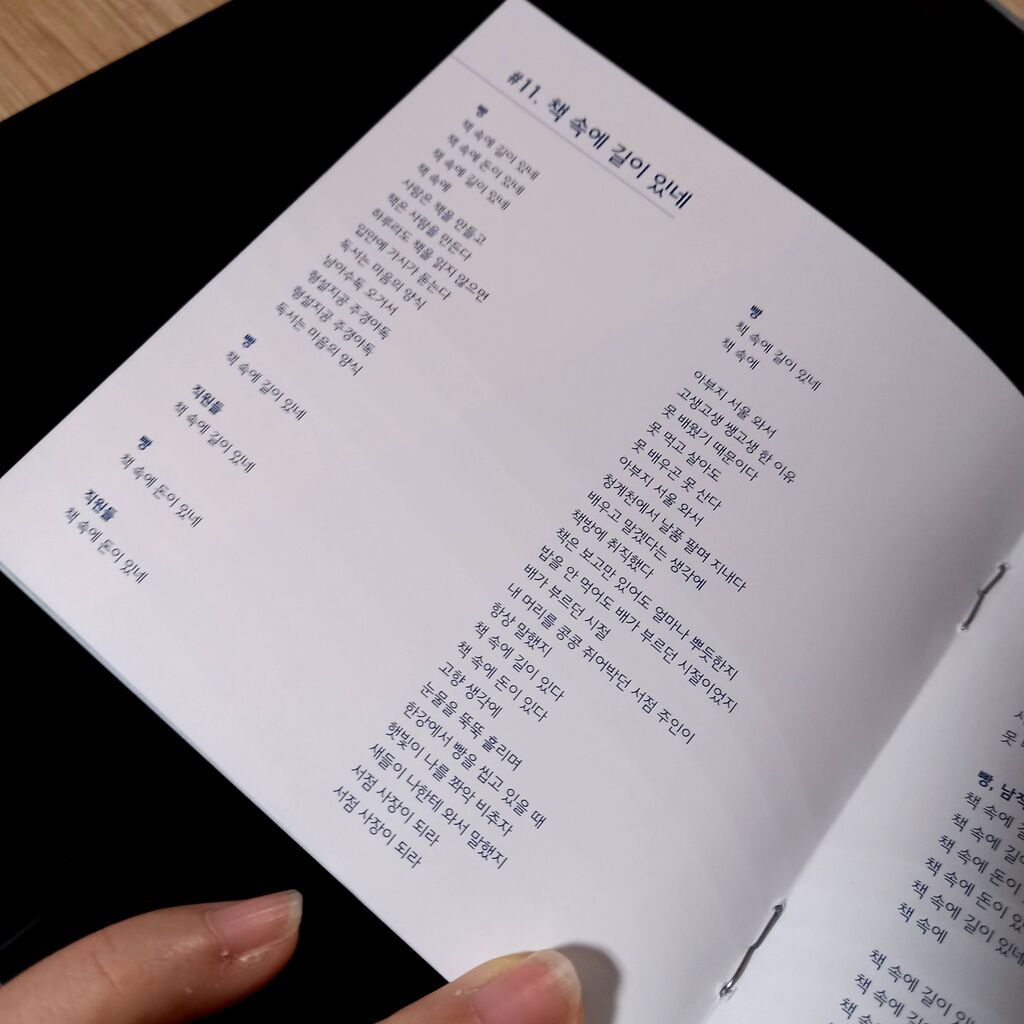 #11. 책 속에 길이 있네
빵
책 속에 길이 있네
책 속에 돈이 있네
책 속에 길이 있네
책 속에
사람은 책을 만들고
책은 사람을 만든다
하루라도 책을 읽지 않으면
입안에 가시가 돋는다
독서는 마음의 양식
남아수독 오거서
형설지공 주경야독
형설지공 주경야독
독서는 마음의 양식
빵
책 속에 길이 있네
직원들
책 속에 길이 있네
빵
책 속에 돈이 있네
직원들
책 속에 돈이 있네
빵
책 속에 길이 있네
책 속에
아부지 서울 와서
고생고생 쌩고생 한 이유
못 배웠기 때문이다
못 먹고 살아도
못 배우곤 못 산다
아부지 서울 와서
청계천에서 날품 팔며 지내다
배우고 말겠다는 생각에
책방에 취직했다
책은 보고만 있어도 얼마나 뿌듯한지
밥을 안 먹어도 배가 부르던 시절이었지
배가 부르던 시절
내 머리를 콩콩 쥐어박던 서점 주인이
항상 말했지
책 속에 길이 있다
책 속에 돈이 있다
고향 생각에
눈물을 뚝뚝 흘리며
한강에서 빵을 씹고 있을 때
햇빛이 나를 쫘악 비추자
새들이 나한테 와서 말했지
서점 사장이 되라
서점 사장이 되라
못
빵, 남
책 속에
책 속에 길이
책 속에 돈이
책 속에 돈이 있
책 속에 길이 있네
책 속에
책 속에 길이 있
책 속에 길이
책 속에